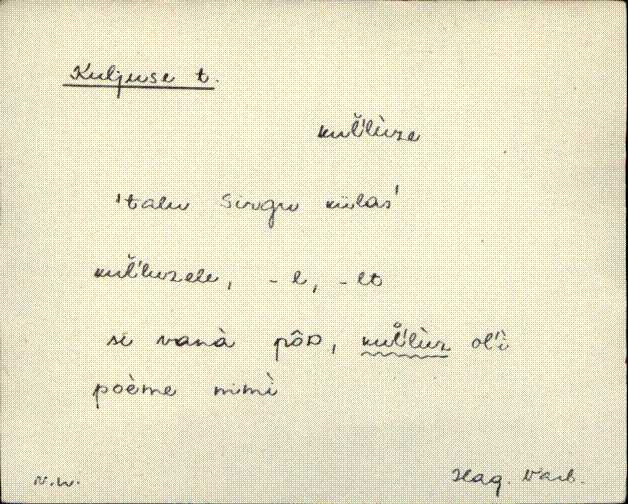 Kuljuse t.
kuľ̀l̀ùze
'talu Sirgu külas'
kuľ̀luzele, -l, -lt
se vanà pôD, kuľ̀l̀ùz ol'ì
poème nimì
N.W.
Hag. Varb.